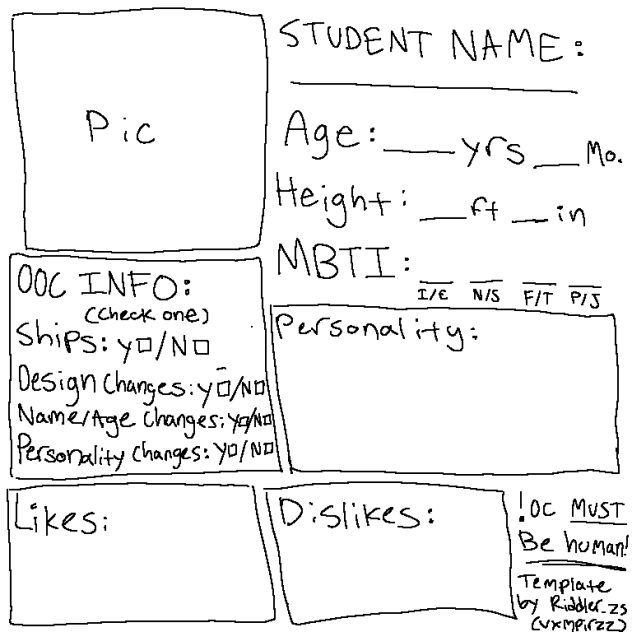 Pic
STUDENT NAME:
Age: ___ yrs __ Mo.
Height: __ ft __ in
MBTI:
I/E N/S F/T P/J
OOC INFO:
(Check one)
Ships: Y□/N□
Design Changes: Y□/N□
Name/Age Changes: Y□/N□
Personality Changes: Y□/N□
Personality:
Likes:
Dislikes:
!OC MUST
Be human!
Template
by Riddler_zs
(vxmpirzz)